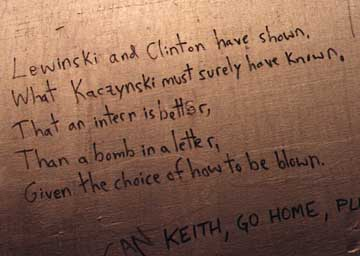 Lewinski and Clinton have shown,
What Kaczynski must surely have known,
That an intern is better,
Than a bomb in a letter,
Given the choice of how to be blown.
CAN KEITH, GO HOME, PL